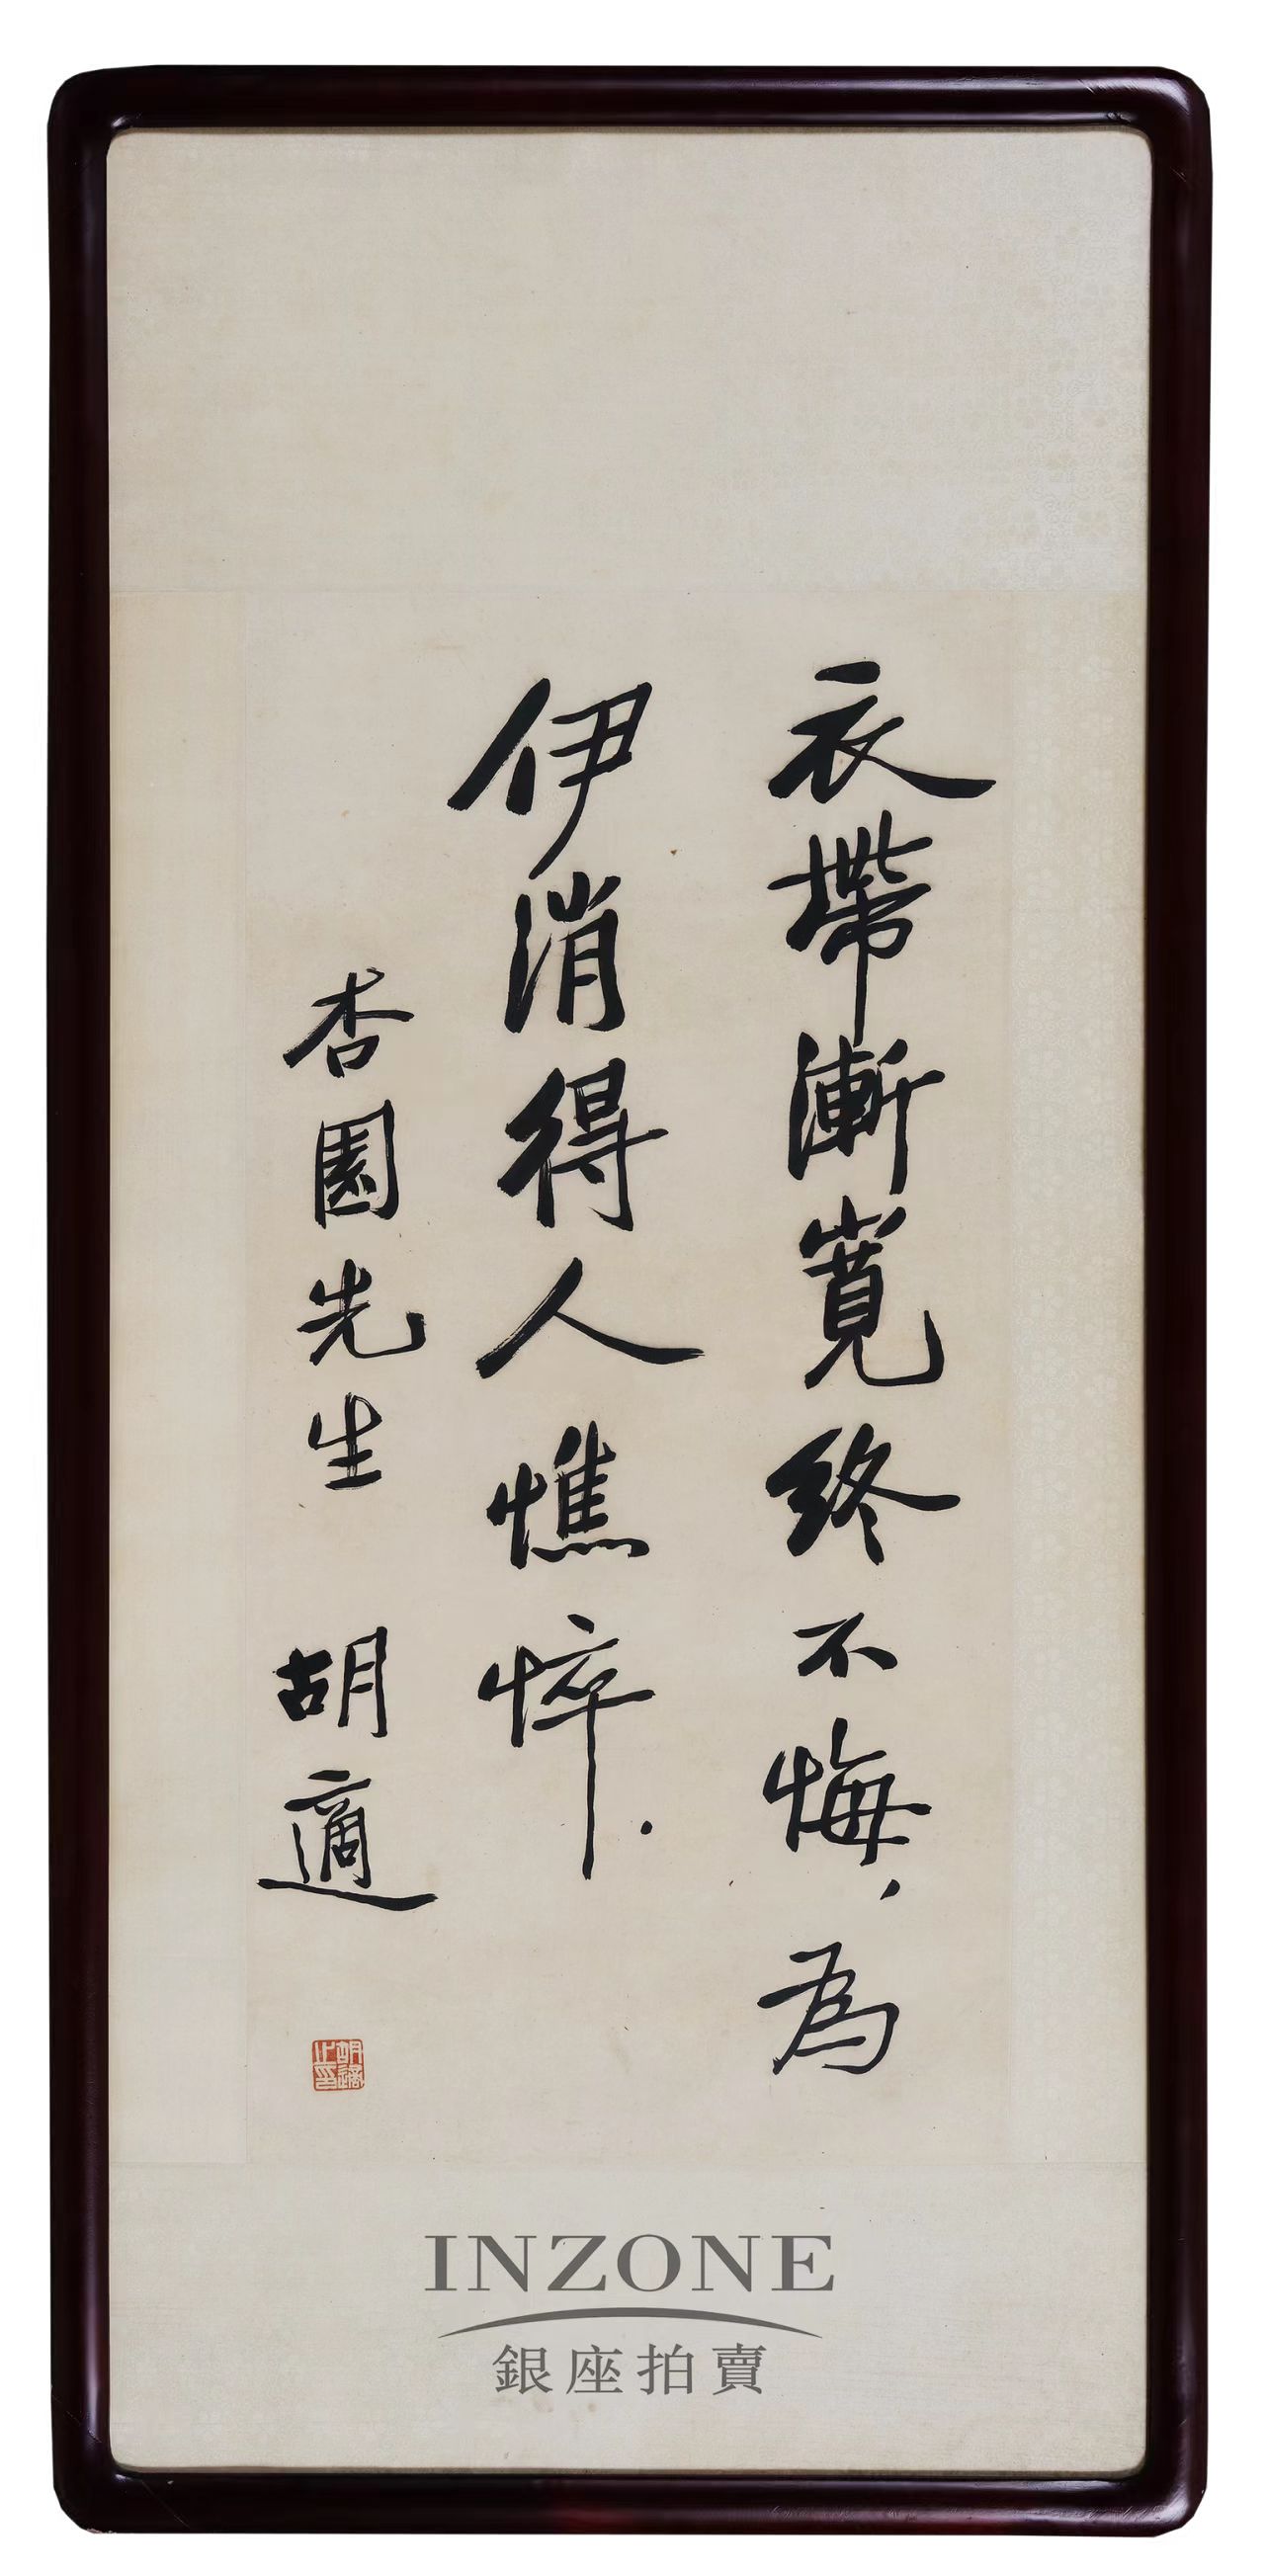 衣帶漸寬終不悔，為
伊消得人憔悴．
杏園先生 胡適
胡適之印
INZONE
銀座拍賣